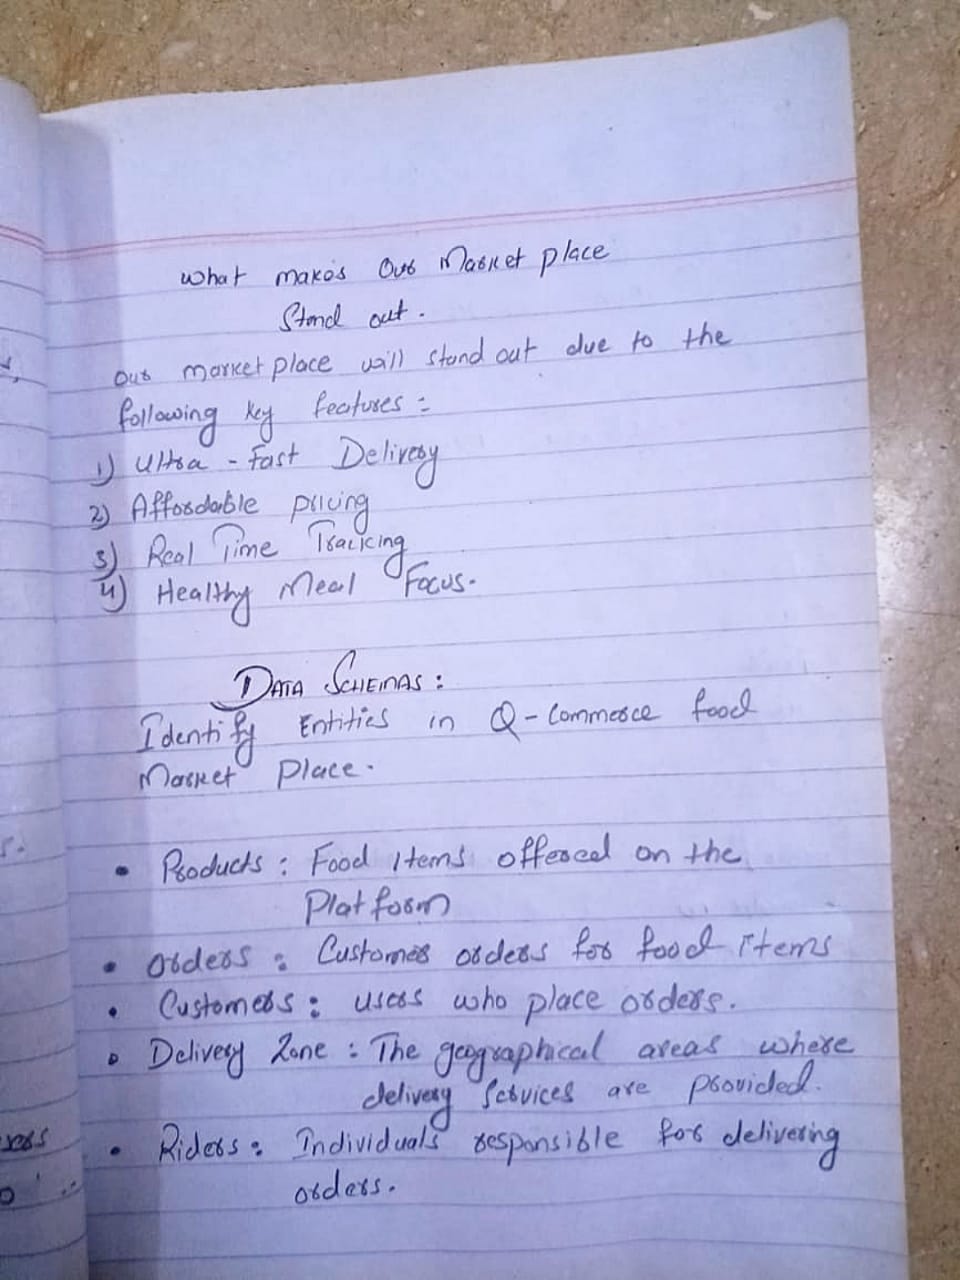 What makes Our Market place
Stand out.
Our market place will stand out due to the
following key features :-
1) Ultra - Fast Delivery
2) Affordable pricing
3) Real Time Tracking
4) Healthy Meal Focus.
DATA SCHEMAS :
Identify Entities in Q-Commerce food
Market Place.
• Products : Food Items offered on the
Platform
• Orders : Customer orders for food items
• Customers : users who place orders.
• Delivery Zone : The geographical areas where
delivery Services are provided.
• Riders : Individuals responsible for delivering
orders.